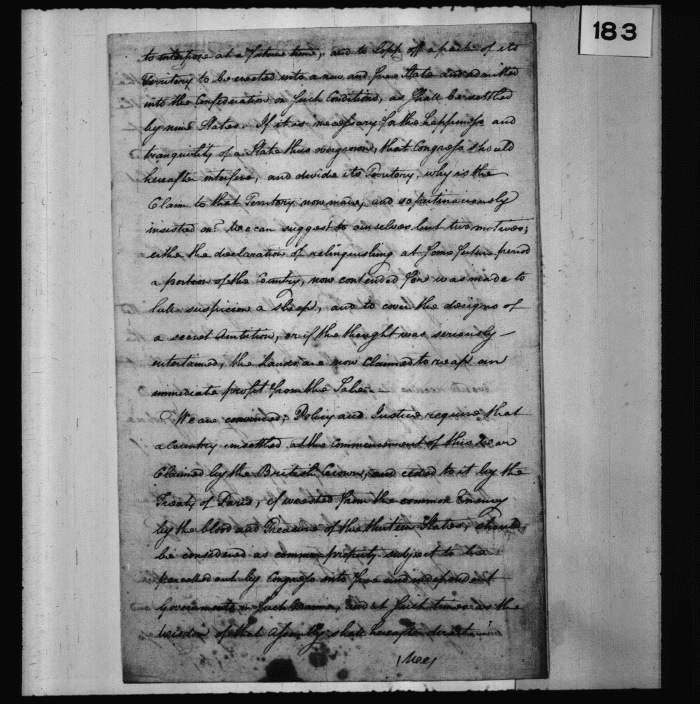 183
to interpose at a future time, and to Lopp off a part of its
Territory to be erected into a new and free State and admitted
into the Confederation on such Conditions, as shall be settled
by nine States. If it is necessary for the happiness and
tranquility of a State thus overgrown, that Congress should
hereafter interfere, and divide its Territory, why is the
Claim to that Territory now made, and so pertinaciously
insisted on? We can suggest to ourselves but two motives;
either the declaration of relinquishing at some future period
a portion of the Country, now contended for was made to
lull suspicion a sleep, and to cover the designs of
a secret Ambition, or if the thought was seriously
entertained, the Lands are now claimed to reap an
immediate profit from the Sale.
We are convinced, Policy and Justice require that
a Country unsettled at the Commencement of this War
Claimed by the British Crown, and ceded to it by the
Treaty of Paris, if wrested from the common Enemy
by the blood and Treasure of the thirteen States, should
be considered as common property subject to be
parcelled out by Congress into free and independent
Governments in such Manner, and at such times as the
wisdom of that Assembly shall hereafter direct